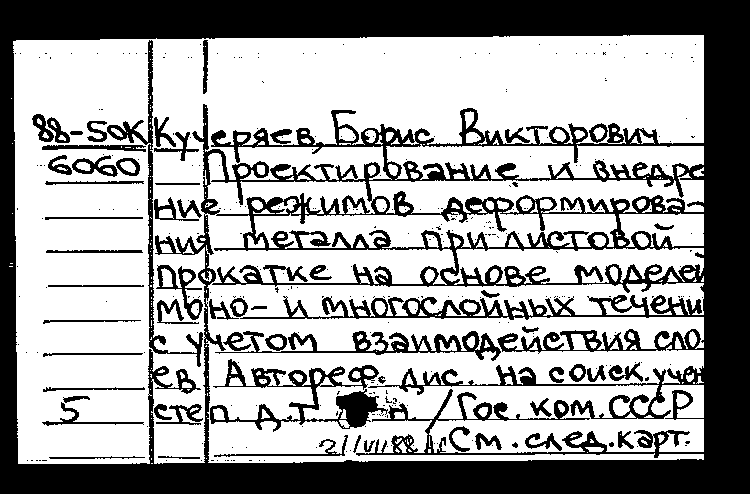 88-50К Кучеряев, Борис Викторович
6060 Проектирование и внедре
ние режимов деформирова-
ния металла при листовой
прокатке на основе моделей
моно- и многослойных течени
с учетом взаимодействия сло-
ев. Автореф. дис. на соиск. учен
5 степ. д.т. н. / Гос. ком. СССР
См. след. карт.